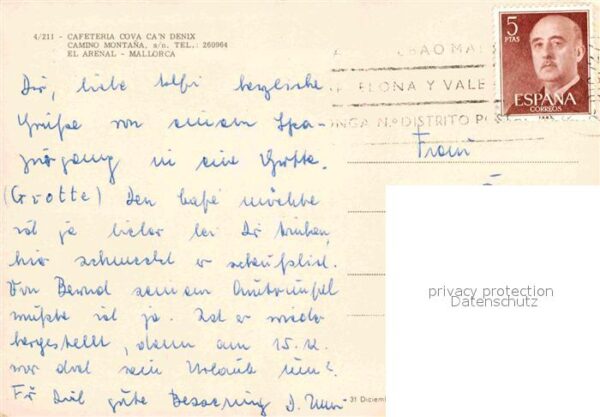 4/211 - CAFETERIA COVA CA'N DENIX
CAMINO MONTAÑA, s/n. TEL.: 260964
EL ARENAL - MALLORCA
5
PTAS
ESPAÑA
CORREOS
BAO MA
ELONA Y VALE
NGA N.o DISTRITO PO
Dir, liebe herzliche
Grüße von einem Spa-
ziergang in eine Grotte.
(Grotte) Den Kafé möchte
ich ja lieber bei Dir trinken,
hier schmeckt er scheußlich.
Von Bernd seinem Autounfall
wußte ich ja. Ist er wieder
hergestellt, denn am 15.12.
war doch sein Urlaub um?
Für Dich gute Besserung D.
Frau
31 Diciem
privacy protection
Datenschutz